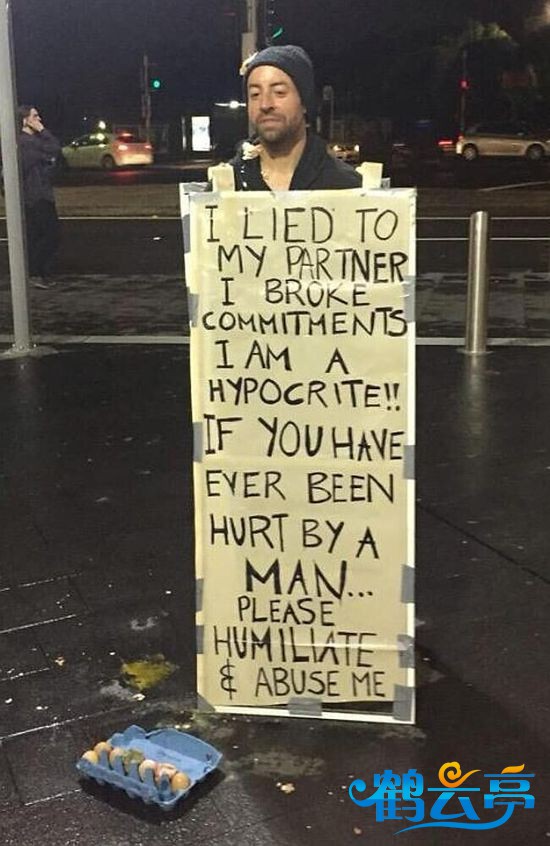 I LIED TO
MY PARTNER
I BROKE
COMMITMENTS
I AM A
HYPOCRITE!!
IF YOU HAVE
EVER BEEN
HURT BY A
MAN...
PLEASE
HUMILIATE
& ABUSE ME
鹤云亭